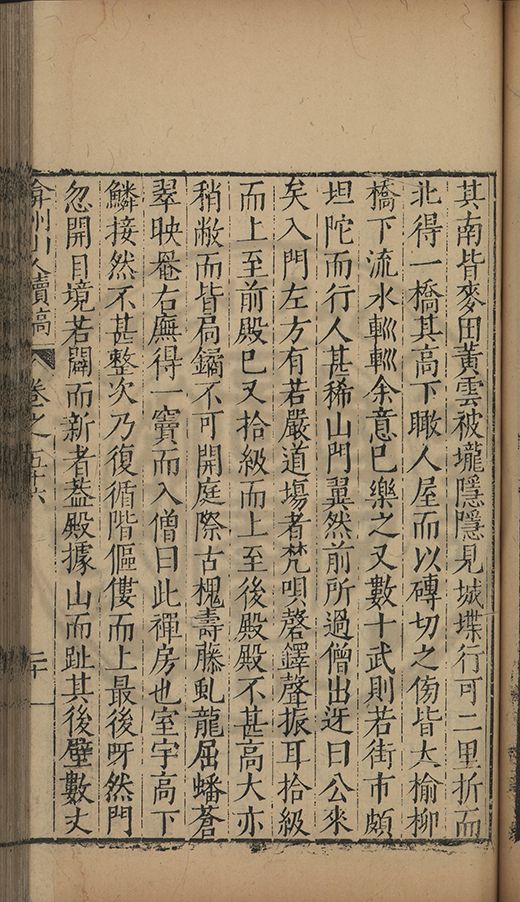 其南皆麥田黃雲被壠隱隱見城堞行可二里折而
北得一橋其高下瞰人屋而以磚切之傍皆大榆柳
橋下流水輣輣余意已樂之又數十武則若街市頗
坦陀而行人甚稀山門翼然前所過僧出迓曰公來
矣入門左方有若嚴道塲者梵唄磬鐸聲振耳拾級
而上至前殿已又拾級而上至後殿殿不甚高大亦
稍敝而皆扃鐍不可開庭際古槐壽藤虬龍屈蟠蒼
翠映罨右廡得一竇而入僧曰此禪房也室宇高下
鱗接然不甚整次乃復循階傴僂而上最後呀然門
忽開目境若闢而新者葢殿據山而趾其後壁數丈
弇州山人續稿 卷之五十六 二十一